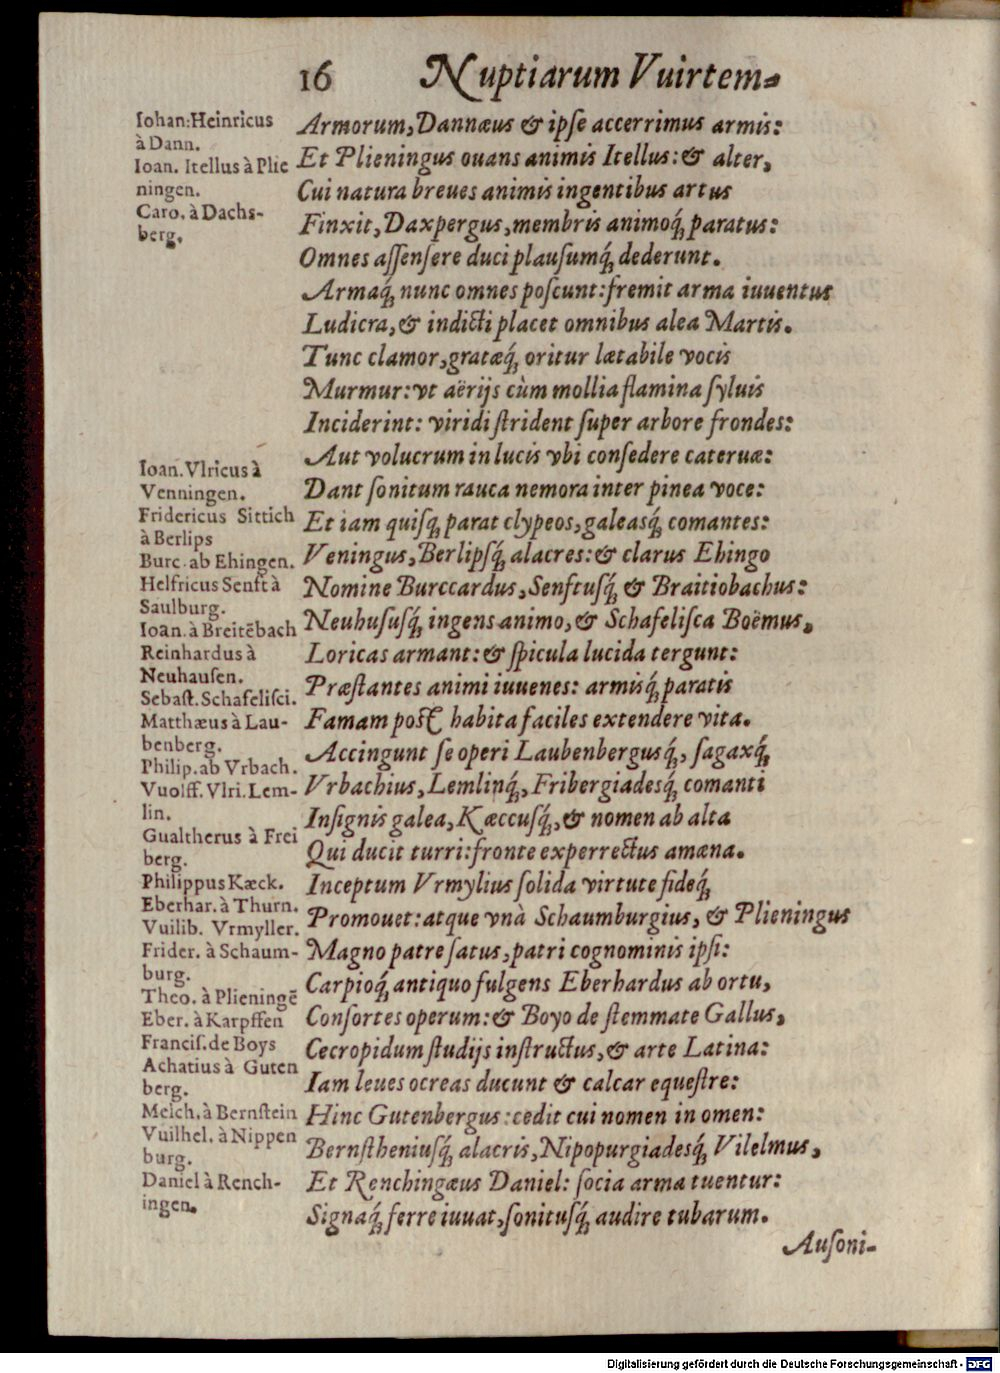 16 Nuptiarum Vuirtem-
Iohan: Heinricus
à Dann.
Ioan. Itellus à Plie
ningen.
Caro. à Dachs-
berg.
Armorum, Dannæus & ipſe accerrimus armis:
Et Plieningus ouans animis Itellus: & alter,
Cui natura breues animis ingentibus artus
Finxit, Daxpergus, membris animoq́; paratus:
Omnes aſſenſere duci plauſumq́; dederunt.
Armaq́; nunc omnes poſcunt: fremit arma iuuentus
Ludicra, & indicti placet omnibus alea Martis.
Tunc clamor, gratæq́; oritur lætabile vocis
Murmur: vt aërijs cùm mollia flamina ſyluis
Inciderint: viridi ſtrident ſuper arbore frondes:
Aut volucrum in lucis vbi conſedere cateruæ:
Dant ſonitum rauca nemora inter pinea voce:
Et iam quiſq; parat clypeos, galeasq́; comantes:
Veningus, Berlipſq́; alacres: & clarus Ehingo
Nomine Burccardus, Senftuſq́; & Braitiobachus:
Neuhuſuſq́; ingens animo, & Schafeliſca Boëmus,
Loricas armant: & ſpicula lucida tergunt:
Præſtantes animi iuuenes: armisq́; paratis
Famam poſt habita faciles extendere vita.
Accingunt ſe operi Laubenbergusq́;, ſagaxq́;
Vrbachius, Lemlinq́;, Fribergiadesq́; comanti
Inſignis galea, Kæccuſq́;, & nomen ab alta
Qui ducit turri: fronte experrectus amœna.
Inceptum Vrmylius ſolida virtute fideq́;
Promouet: atque vnà Schaumburgius, & Plieningus
Magno patre ſatus, patri cognominis ipſi:
Carpioq́; antiquo fulgens Eberhardus ab ortu,
Conſortes operum: & Boyo de ſtemmate Gallus,
Cecropidum ſtudijs inſtructus, & arte Latina:
Iam leues ocreas ducunt & calcar equeſtre:
Hinc Gutenbergus: cedit cui nomen in omen:
Bernſtheniuſq́; alacris, Nipopurgiadesq́; Vilelmus,
Et Renchingæus Daniel: ſocia arma tuentur:
Signaq́; ferre iuuat, ſonituſq́; audire tubarum.
Ioan. Vlricus à
Venningen.
Fridericus Sittich
à Berlips
Burc. ab Ehingen.
Helfricus Senft à
Saulburg.
Ioan. à Breitēbach
Reinhardus à
Neuhauſen.
Sebaſt. Schafeliſci.
Matthæus à Lau-
benberg.
Philip. ab Vrbach.
Vuolff. Vlri. Lem-
lin.
Gualtherus à Frei
berg.
Philippus Kæck.
Eberhar. à Thurn.
Vuilib. Vrmyller.
Frider. à Schaum-
burg.
Theo. à Plieningē
Eber. à Karpffen
Franciſ. de Boys
Achatius à Guten
berg.
Melch. à Bernſtein
Vuilhel. à Nippen
burg.
Daniel à Rench-
ingen.
Auſoni-
Digitalisierung gefördert durch die Deutsche Forschungsgemeinschaft - DFG